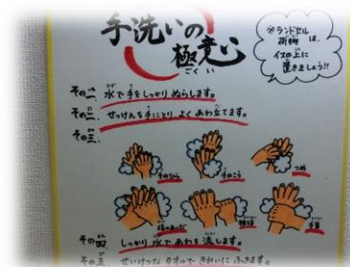 手洗いの
極意
ごくい
※ランドセル
荷物は、
イスの上に
置きましょう!!
その一、水で手をしっかりぬらします。
その二、せっけんを手にとり、よくあわ立てます。
その三、
てのひら
手のこう
つめ
指のあいだ
親指
手首
その四、しっかり水であわを流します。
その五、せいけつなタオルできれいにふきます。